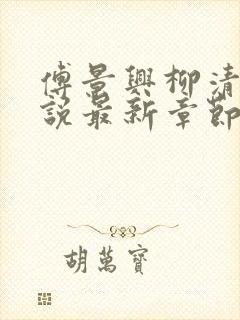 傅景興柳清
說最新章節
胡萬寶